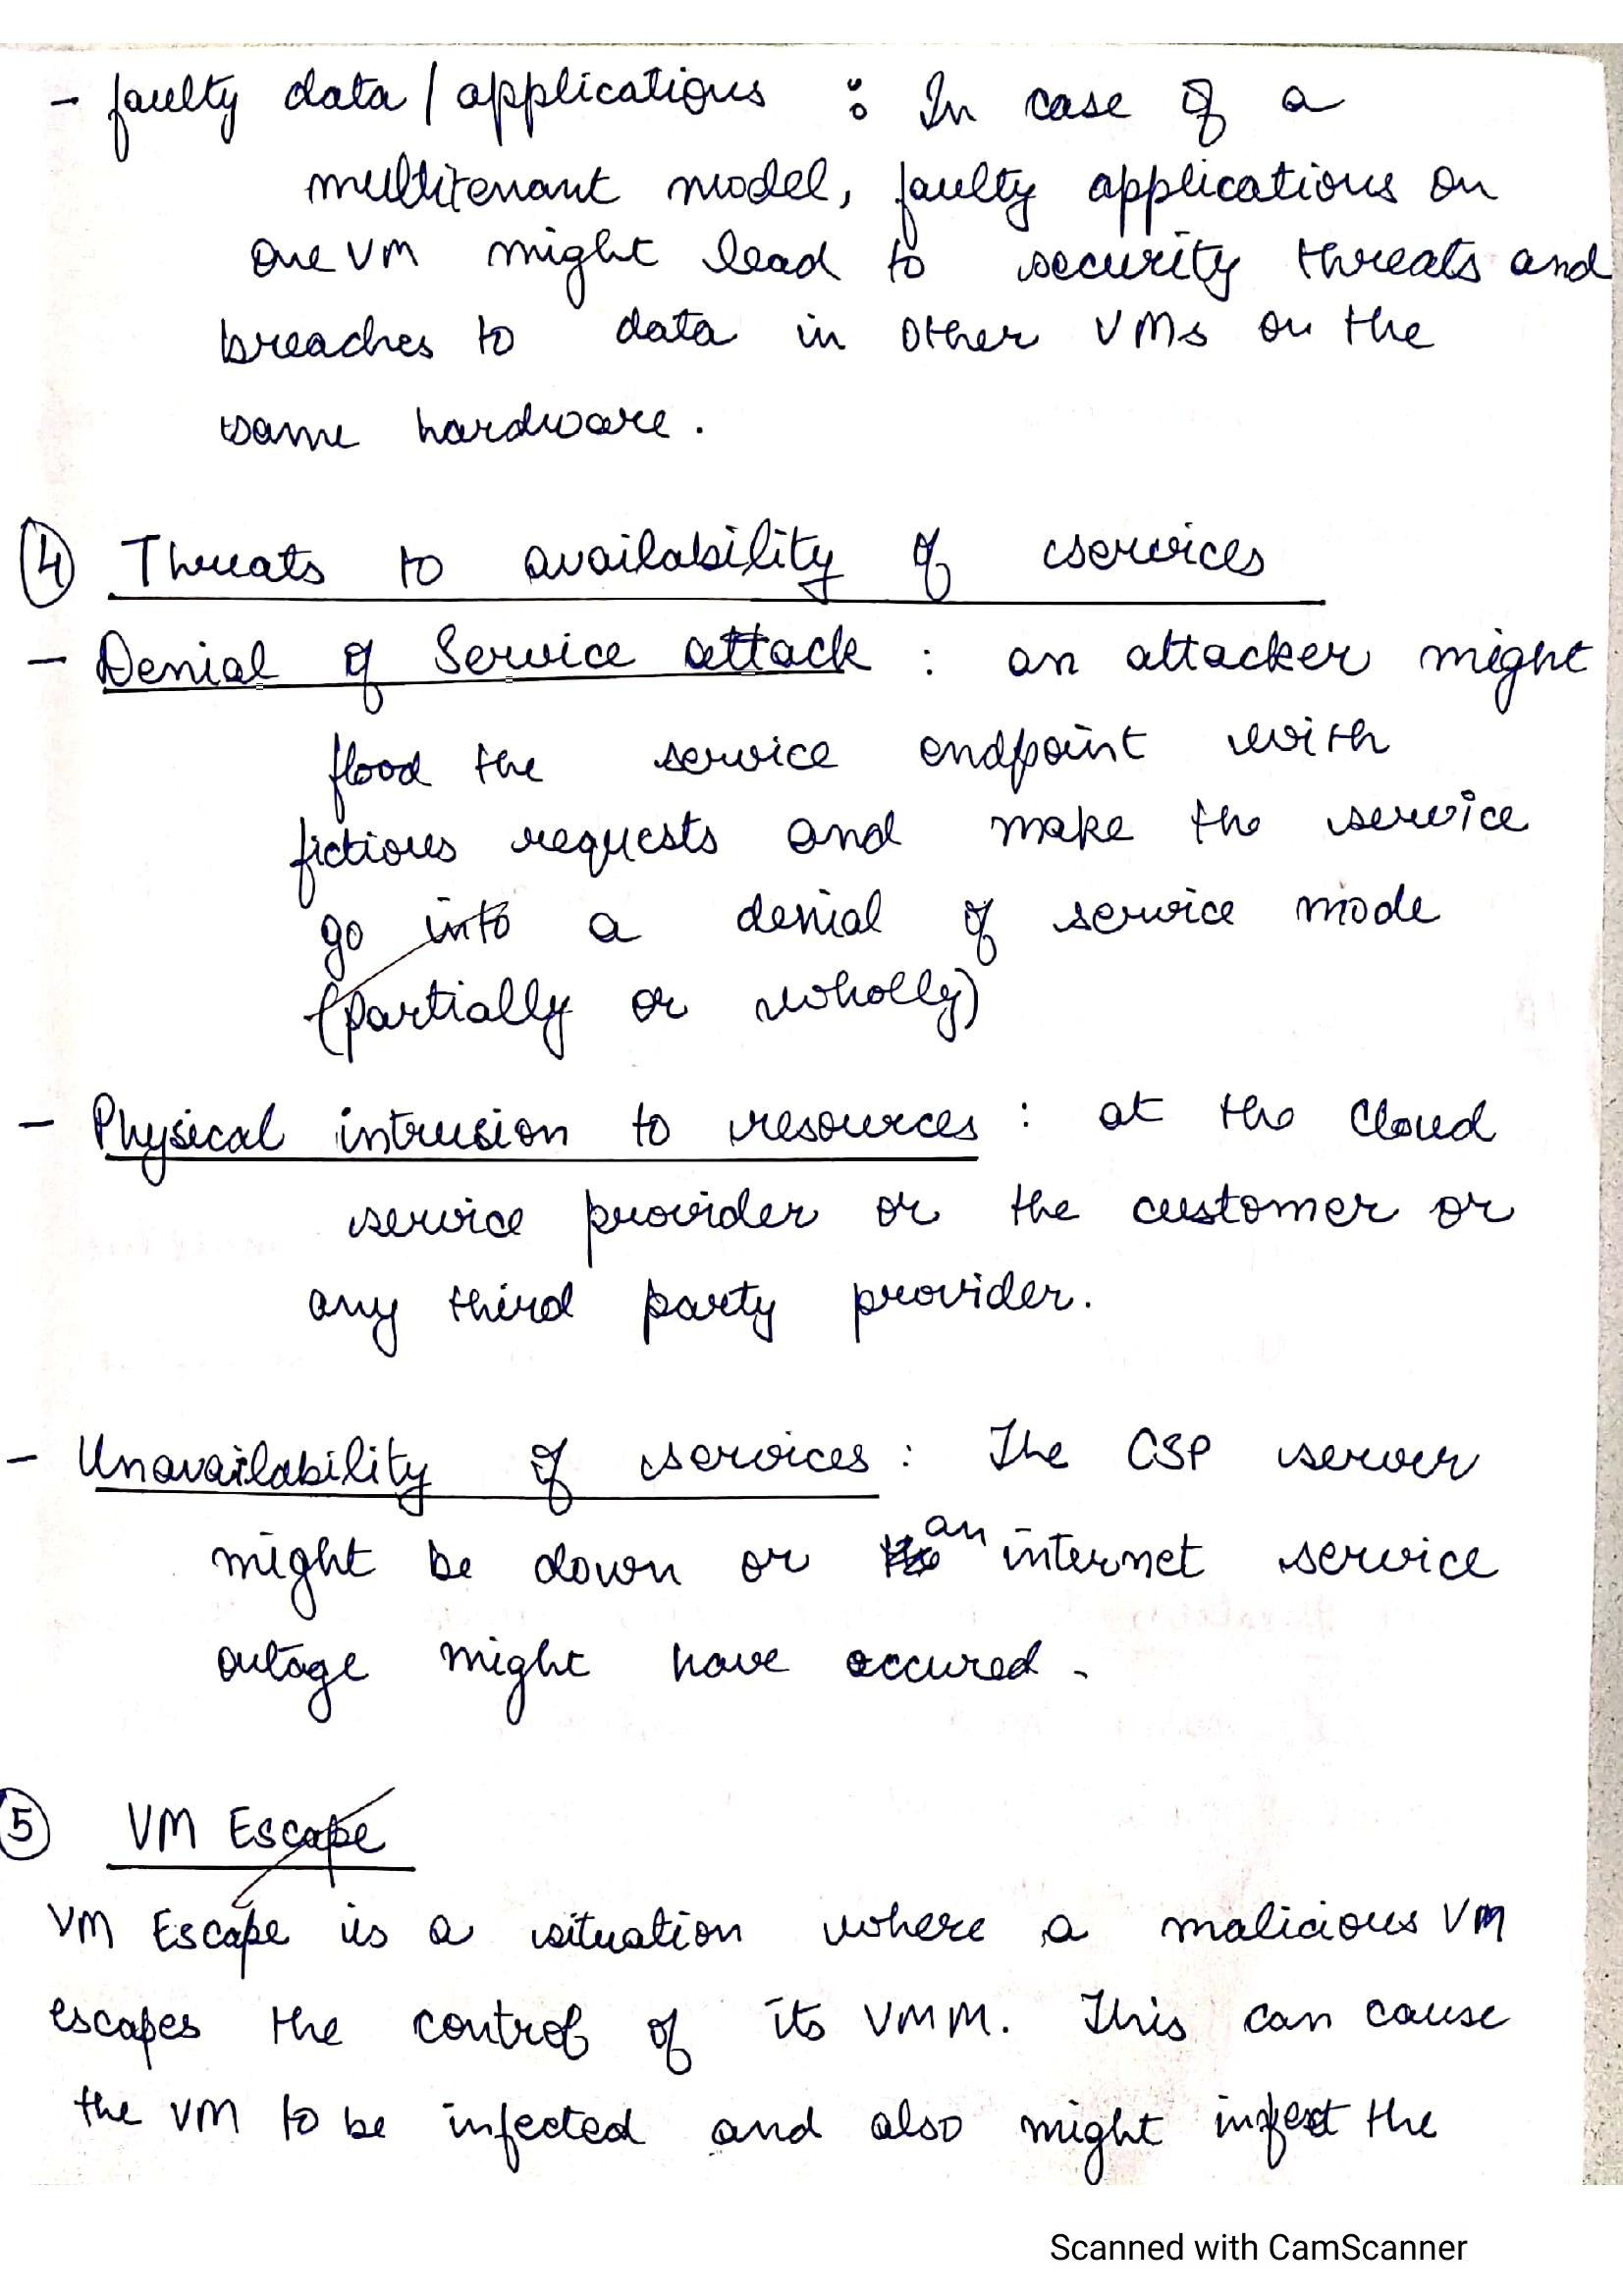 - faulty data / applications : In case of a
multitenant model, faulty applications on
one VM might lead to security threats and
breaches to data in other VMs on the
same hardware.
④ Threats to availability of services
- Denial of Service attack : an attacker might
flood the service endpoint with
fictious requests and make the service
go into a denial of service mode
(partially or wholly)
- Physical intrusion to resources : at the Cloud
service provider or the customer or
any third party provider.
- Unavailability of services : The CSP server
might be down or an internet service
outage might have occured.
⑤ VM Escape
VM Escape is a situation where a malicious VM
escapes the control of its VMM. This can cause
the VM to be infected and also might infect the
Scanned with CamScanner